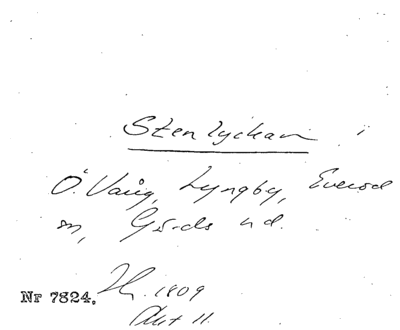 Stenlyckan i
Ö. Vång, Lyngby, Everöd
sn, Gärds hd.
Nr 7824. 1809
Akt 11.